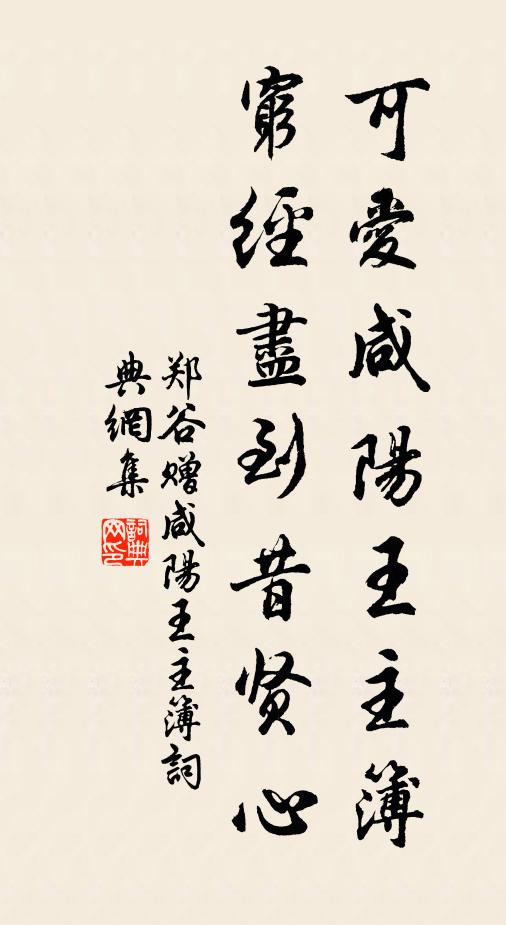 可愛咸陽王主簿
窮經盡到昔贤心
郑谷赠咸陽王主簿詞
典網集
詞典網印